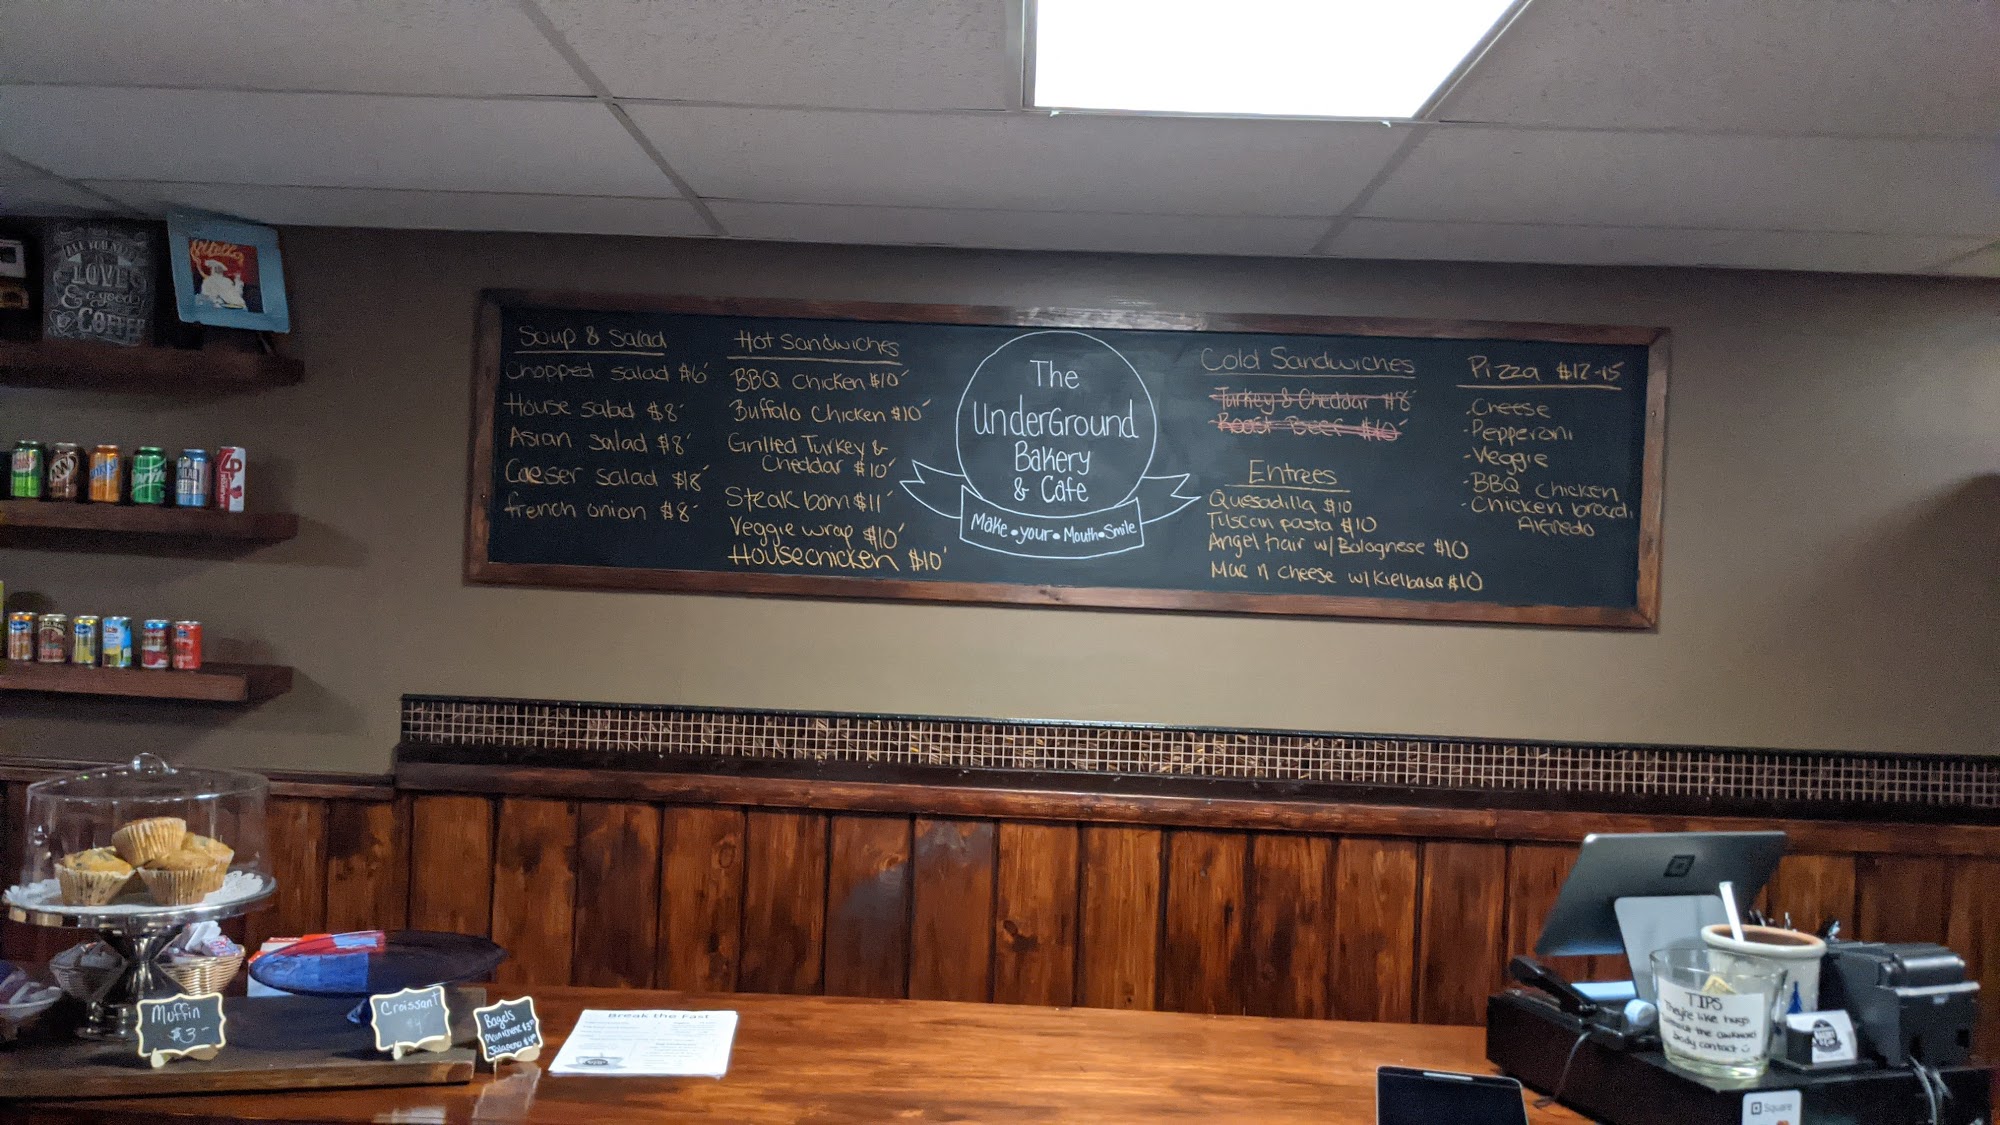 ALL YOU NEED
IS
LOVE
& a good
COFFEE
Soup & Salad
Chopped salad $6
House salad $8
Asian salad $8
Caeser salad $8
french onion $8
Hot Sandwiches
BBQ Chicken $10
Buffalo Chicken $10
Grilled Turkey &
Cheddar $10
Steak bom $11
Veggie wrap $10
House chicken $10
The
UnderGround
Bakery
& Cafe
Make • your • Mouth • Smile
Cold Sandwiches
Turkey & Cheddar $8
Roast Beef $10
Entrees
Quesadilla $10
Tuscan pasta $10
Angel hair w/ Bolognese $10
Mac n cheese w/ Kielbasa $10
Pizza $12-15
-Cheese
-Pepperoni
-Veggie
-BBQ Chicken
-Chicken brocd.
Alfredo
A&W
Sprite
Muffin
$3
Croissant
$4
Bagels
Jalapeno
Break the Fast
TIPS
They're like hugs
without the awkward
body contact
Square